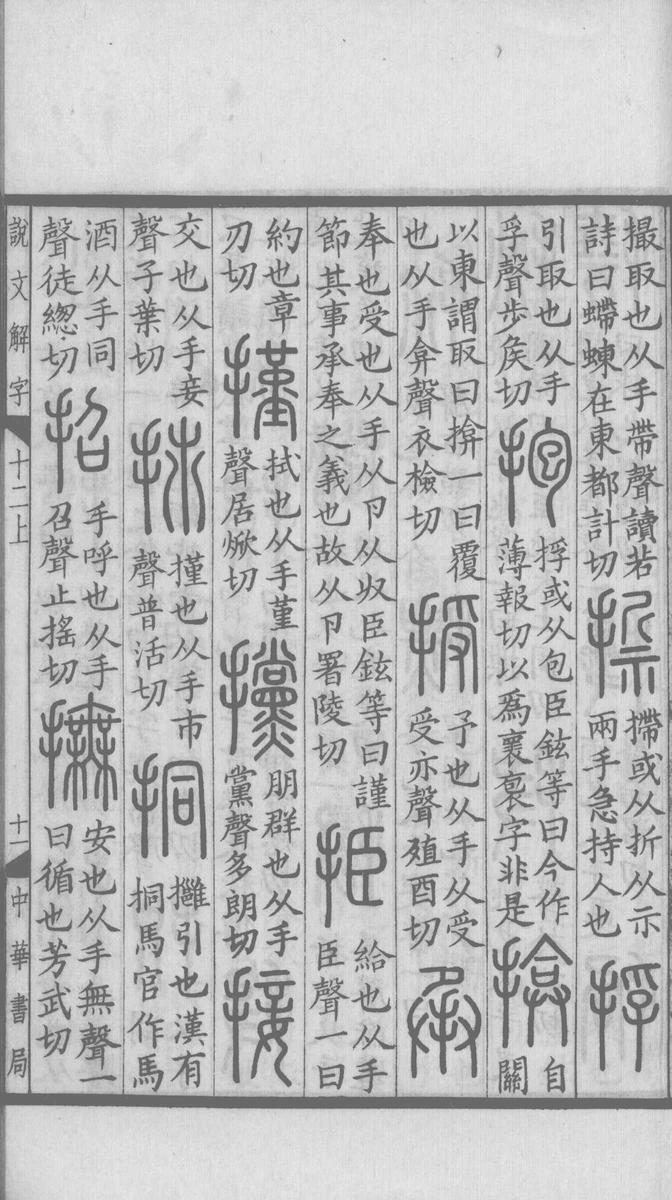 撮取也从手帶聲讀若
詩曰螮蝀在東都計切
摕或从折从示
兩手急持人也
捊
引取也从手
孚聲步矦切
抱
捊或从包臣鉉等曰今作
薄報切以爲襃袌字非是
揜
自
關
以東謂取曰揜一曰覆
也从手弇聲衣檢切
授
予也从手从受
受亦聲殖酉切
承
奉也受也从手从卪从収臣鉉等曰謹
節其事承奉之義也故从卪署陵切
挋
給也从手
臣聲一曰
約也章
刃切
㨷
拭也从手堇
聲居焮切
攩
朋群也从手
黨聲多朗切
接
交也从手妾
聲子葉切
㨷也从手巿
聲普活切
挏
引也漢有
挏馬官作馬
酒从手同
聲徒總切
招
手呼也从手
召聲止搖切
撫
安也从手無聲一
曰循也芳武切
說文解字
十二上
十一
中華書局